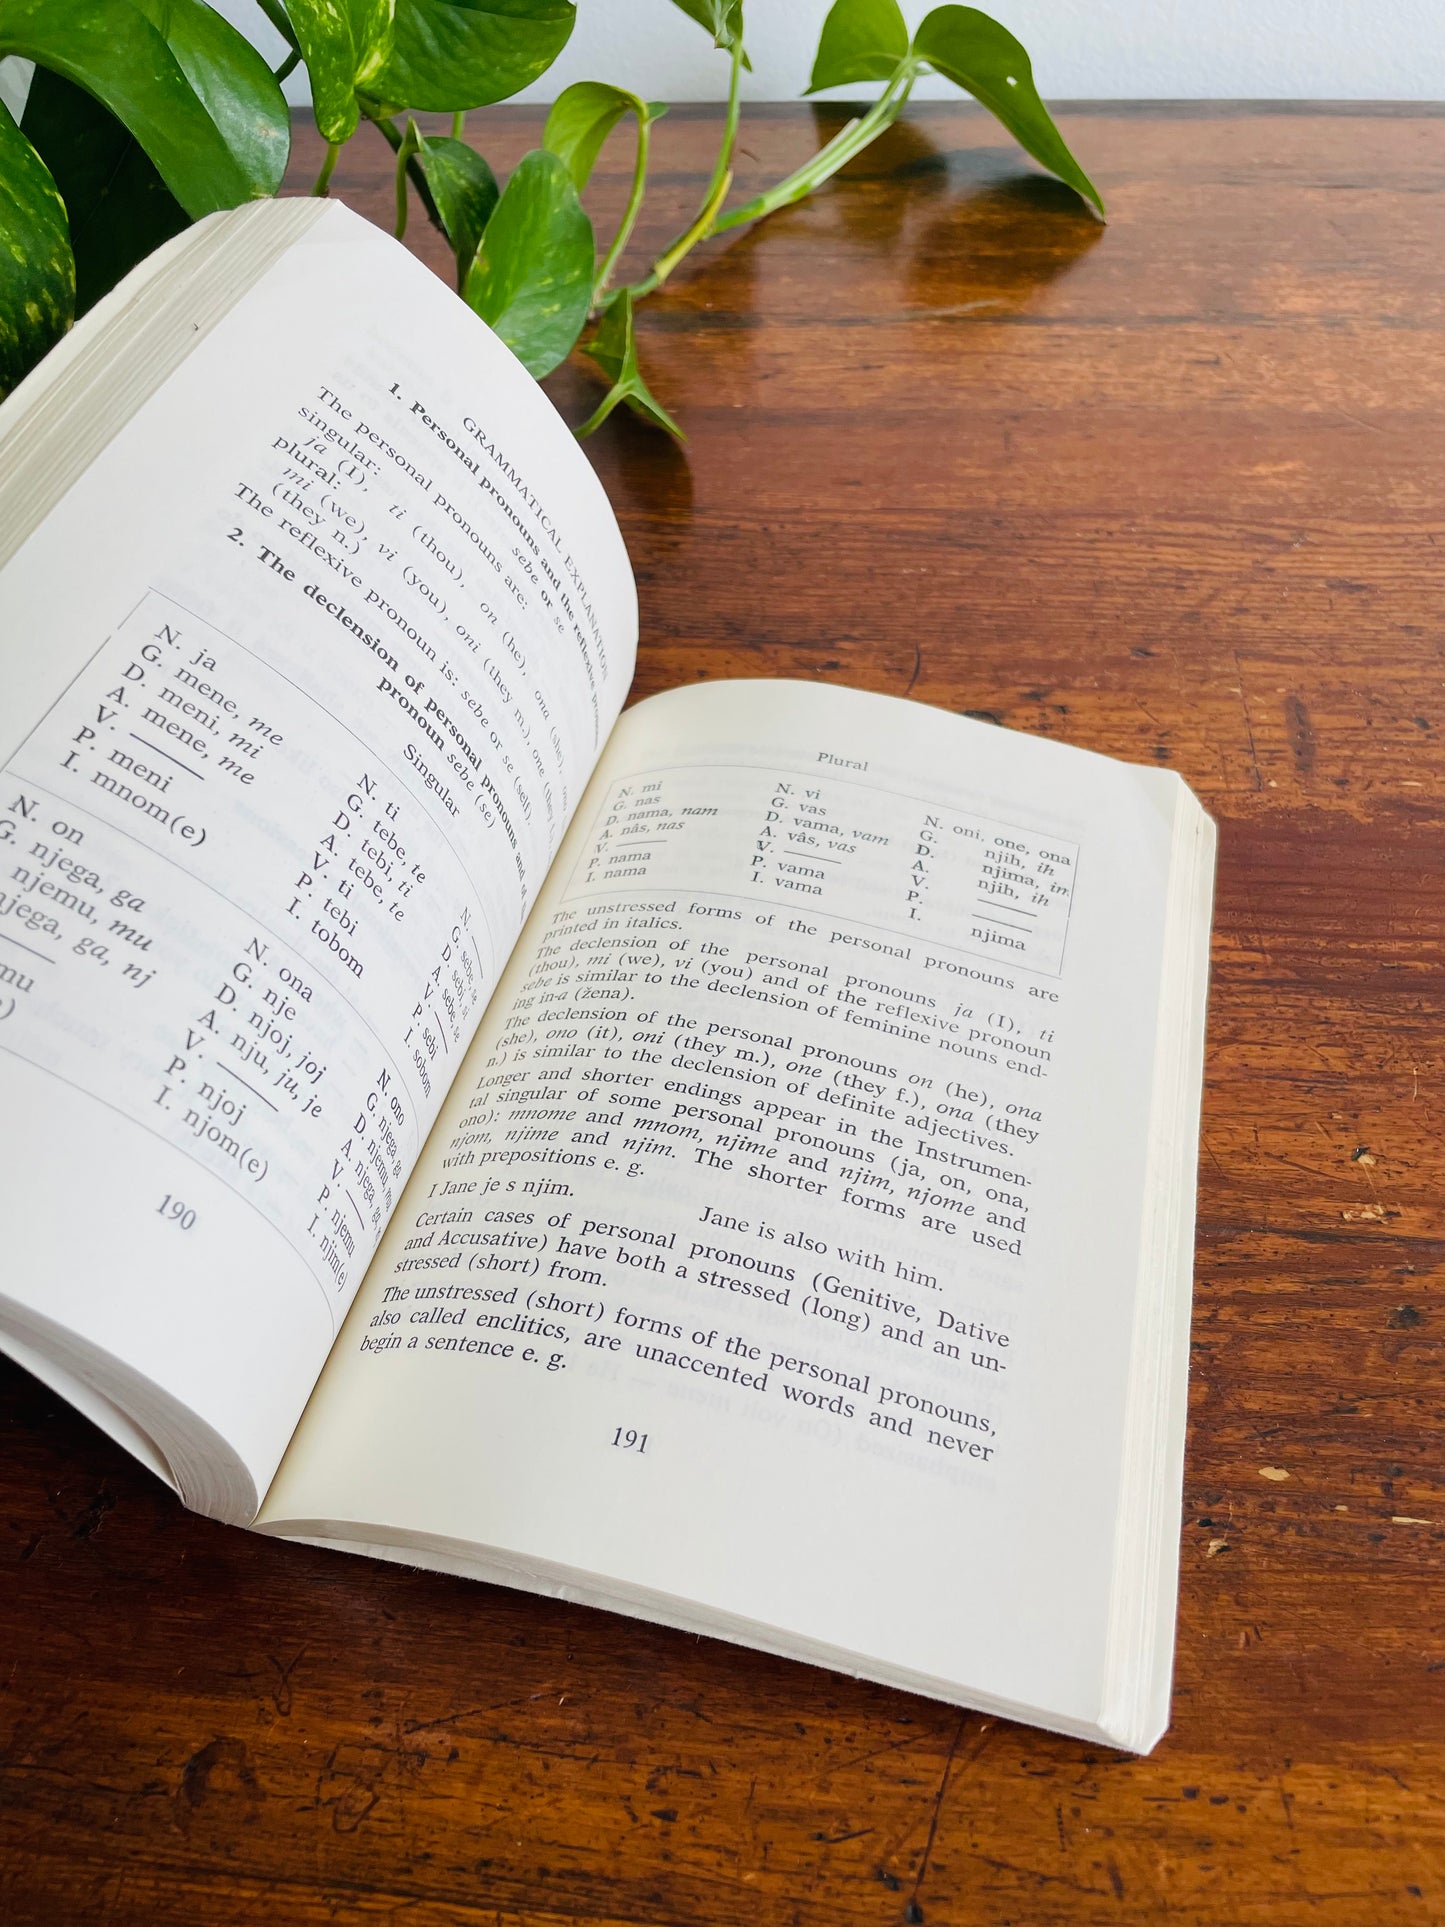 GRAMMATICAL EXPLANATION
1. Personal pronouns and the reflexive pronoun
sebe or se
The personal pronouns are:
singular:
ja (I), ti (thou), on (he), ona (she), ono
plural:
mi (we), vi (you), oni (they m.), one (they
(they n.)
The reflexive pronoun is: sebe or se (self).
2. The declension of personal pronouns and of
pronoun sebe (se)
Singular
N. ja
G. mene, me
D. meni, mi
A. mene, me
V.
P. meni
I. mnom(e)
N. ti
G. tebe, te
D. tebi, ti
A. tebe, te
V. ti
P. tebi
I. tobom
N.
G. sebe, se
D. sebi, si
A. sebe, se
V.
P. sebi
I. sobom
N. on
G. njega, ga
njemu, mu
njega, ga, nj
mu
)
N. ona
G. nje
D. njoj, joj
A. nju, ju, je
V.
P. njoj
I. njom(e)
N. ono
G. njega, ga
D. njemu, mu
A. njega, ga,
V.
P. njemu
I. njim(e)
190
Plural
N. mi
G. nas
D. nama, nam
A. nâs, nas
V.
P. nama
I. nama
N. vi
G. vas
D. vama, vam
A. vâs, vas
V.
P. vama
I. vama
N. oni, one, ona
G. njih, ih
D. njima, im
A. njih, ih
V.
P.
I. njima
The unstressed forms of the personal pronouns are
printed in italics.
The declension of the personal pronouns ja (I), ti
(thou), mi (we), vi (you) and of the reflexive pronoun
sebe is similar to the declension of feminine nouns end-
ing in-a (žena).
The declension of the personal pronouns on (he), ona
(she), ono (it), oni (they m.), one (they f.), ona (they
n.) is similar to the declension of definite adjectives.
Longer and shorter endings appear in the Instrumen-
tal singular of some personal pronouns (ja, on, ona,
ono): mnome and mnom, njime and njim, njome and
njom, njime and njim. The shorter forms are used
with prepositions e. g.
I Jane je s njim. Jane is also with him.
Certain cases of personal pronouns (Genitive, Dative
and Accusative) have both a stressed (long) and an un-
stressed (short) from.
The unstressed (short) forms of the personal pronouns,
also called enclitics, are unaccented words and never
begin a sentence e. g.
191